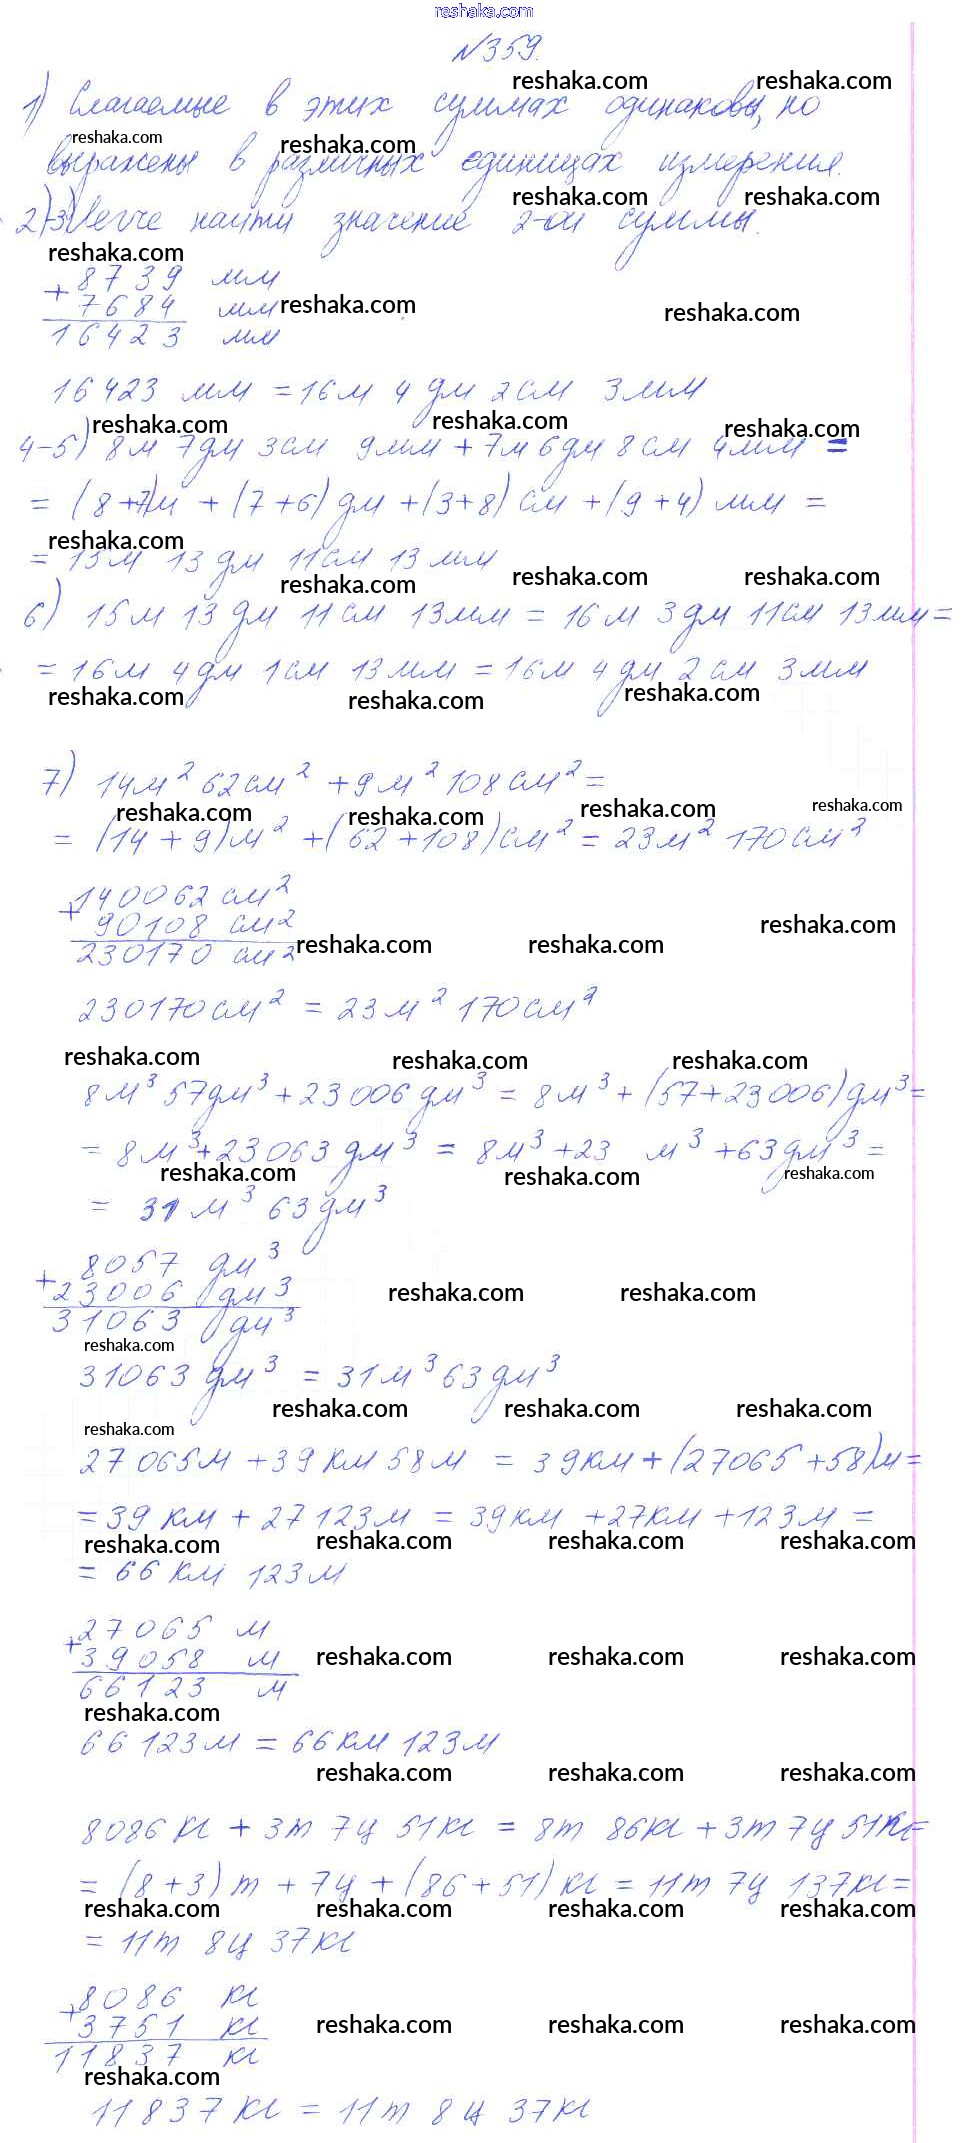 reshaka.com
№359.
1) Слагаемые в этих суммах одинаковы, но
выражены в различных единицах измерения.
2)-3) Легче найти значение 2-ой суммы.
+ 8739 мм
7684 мм
16423 мм
16423 мм = 16м 4 дм 2см 3мм
4-5) 8м 7дм 3см 9мм + 7м 6дм 8см 4мм =
= (8+7)м + (7+6) дм + (3+8) см + (9+4) мм =
= 15м 13 дм 11см 13 мм
6) 15м 13 дм 11см 13мм = 16м 3дм 11см 13мм =
= 16м 4дм 1см 13мм = 16м 4дм 2см 3мм
7) 14м² 62см² + 9м² 108см² =
= (14 + 9)м² + (62+108)см² = 23м² 170см²
+ 140062 см²
90108 см²
230170 см²
230170см² = 23м² 170см²
8м³ 57дм³ + 23006дм³ = 8м³ + (57+23006)дм³ =
= 8м³ + 23063 дм³ = 8м³ + 23 м³ + 63дм³ =
= 31м³ 63дм³
+ 8057 дм³
23006 дм³
31063 дм³
31063 дм³ = 31м³ 63дм³
27065м + 39км 58м = 39км + (27065+58)м =
= 39 км + 27123м = 39км + 27км + 123м =
= 66 км 123м
+ 27065 м
39058 м
66123 м
66123м = 66км 123м
8086кг + 3т 7ц 51кг = 8т 86кг + 3т 7ц 51кг =
= (8+3)т + 7ц + (86+51)кг = 11т 7ц 137кг =
= 11т 8ц 37кг
+ 8086 кг
3751 кг
11837 кг
11837кг = 11т 8ц 37кг